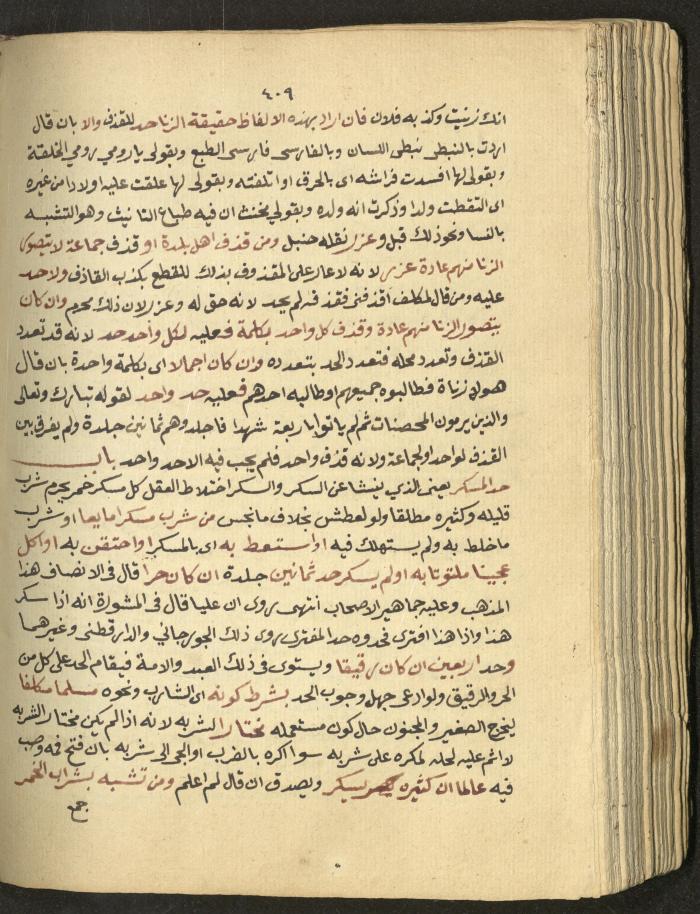 ٤٠٩
انك زنيت وكذبه فلان فان اراد بهذه الالفاظ حقيقة الزنا حد للقذف والا بان قال
اردت بالنبطي نبطي اللسان وبالفارسي فارسي الطبع وبقولي يا رومي رومي الخلقة
وبقولي لها افسدت فراشه اي بالحرق او اتلفته وبقولي لها علقت عليه اولادا من غيره
اي التقطت ولدا وذكرت انه ولده وبقولي مخنث ان فيه طباع التانيث وهو التشبه
بالنسا ونحو ذلك قبل وعزر نقله حنبل ومن قذف اهل بلدة او قذف جماعة لا يتصور
الزنا منهم عادة عزر لانه لا عار على المقذوف بذلك للقطع بكذب القاذف ولا حد
عليه ومن قال لمكلف اقذفني فقذفه لم يحد لانه حق له وعزر لان ذلك محرم وان كان
يتصور الزنا منهم عادة وقذف كل واحد بكلمة فعليه لكل واحد حد لانه قد تعدد
القذف وتعدد محله فتعدد الحد بتعدده وان كان اجمالا اي بكلمة واحدة بان قال
هولاء زناة فطالبوه جميعهم او طالبه احدهم فعليه حد واحد لقوله تبارك وتعالى
والذين يرمون المحصنات ثم لم ياتوا باربعة شهدا فاجلدوهم ثمانين جلدة ولم يفرق بين
القذف لواحد او لجماعة ولانه قذف واحد فلم يجب فيه الا حد واحد باب
حد المسكر يعني الذي ينشا عن السكر والسكر اختلاط العقل كل مسكر خمر يحرم شرب
قليله وكثيره مطلقا ولو لعطش بخلاف ما نجس من شرب مسكرا مايعا او شرب
ما خلط به ولم يستهلك فيه او استعط به اي بالمسكر او احتقن به او اكل
عجينا ملتوتا به او لم يسكر حد ثمانين جلدة ان كان حرا قال في الانصاف هذا
المذهب وعليه جماهير الاصحاب انتهى روي ان عليا قال في المشورة انه اذا سكر
هذا واذا هذا افترى فحدوه حد المفتري روى ذلك الجورجاني والدارقطني وغيرهما
وحد اربعين ان كان رقيقا ويستوي في ذلك العبد والامة فيقام الحد على كل من
الحر والرقيق ولو ادعى جهل وجوب الحد بشرط كونه اي الشارب ونحوه مسلما مكلفا
ليخرج الصغير والمجنون حال كون مستعمله مختارا لشربه لانه اذا لم يكن مختارا لشربه
لا اثم عليه لحله لمكره على شربه سوا اكره بالضرب او الجي الى شربه بان فتح فمه وصب
فيه عالما ان كثيره يسكر ويصدق ان قال لم اعلم ومن تشبه بشراب الخمر